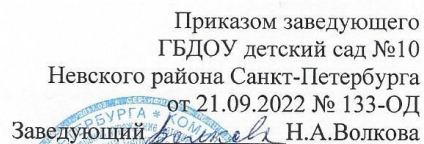 Приказом заведующего
ГБДОУ детский сад №10
Невского района Санкт-Петербурга
от 21.09.2022 № 133-ОД
Заведующий Н.А.Волкова